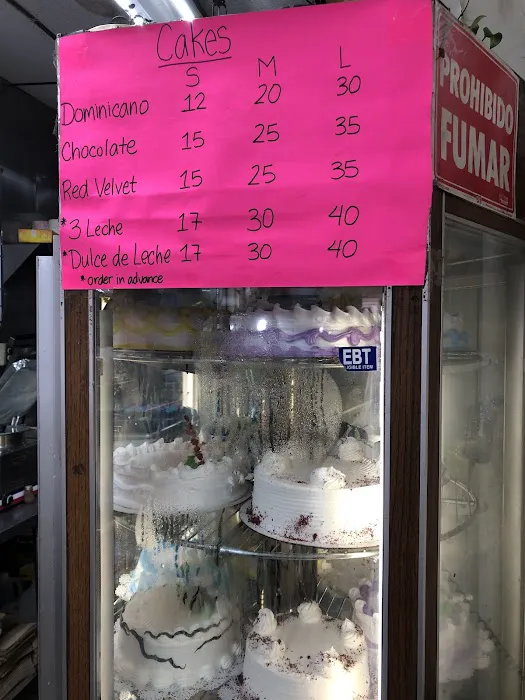 Cakes
S M L
Dominicano 12 20 30
Chocolate 15 25 35
Red Velvet 15 25 35
*3 Leche 17 30 40
*Dulce de Leche 17 30 40
*order in advance
PROHIBIDO
FUMAR
EBT